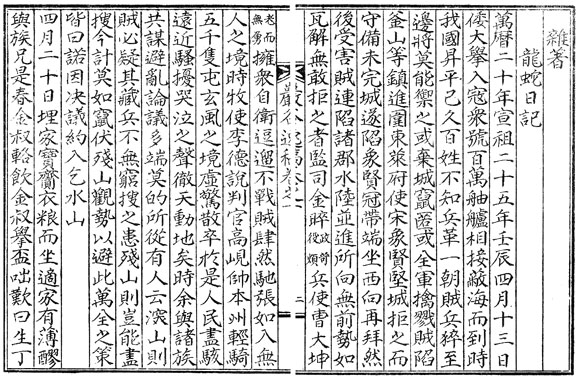 雜著
龍蛇日記
萬曆二十年宣祖二十五年壬辰四月十三日
倭大擧入寇衆號百萬舳艫相接蔽海而到時
我國昇平已久百姓不知兵革一朝賊兵猝至
邊將莫能禦之或棄城竄匿或全軍擒戮賊陷
釜山等鎭進圍東萊府使宋象賢堅城拒之而
守備未完城遂陷象賢冠帶端坐西向再拜然
後受害賊連陷諸郡水陸並進所向無前勢如
瓦解無敢拒之者監司金睟政苛役煩兵使曹大坤
巖谷逸稿卷之一
二
老而無勇擁衆自衛逗遛不戰賊肆然馳張如入無
人之境時牧使李德說判官高峴帥本州輕騎
五千隻屯玄風之境虛驚散卒於是人民盡駭
遠近騷擾哭泣之聲徹天動地矣時余與諸族
共謀避亂論議多端莫的所從有人云深山則
賊必疑其藏兵不無窮搜之患殘山則豈能盡
搜今計莫如竄伏殘山觀勢以避此萬全之策
皆曰諾因决議約入乞水山
四月二十日埋家寶齎衣粮而坐適家有薄醪
與族兄是春金叔輅飮金叔擧盃咄歎曰生丁